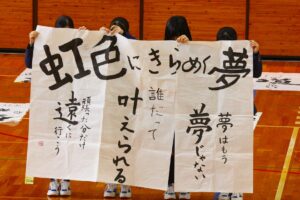 虹色にきらめく夢
夢はもう
夢じゃない
誰だって
叶えられる
頑張った分だけ
遠くに
行こう